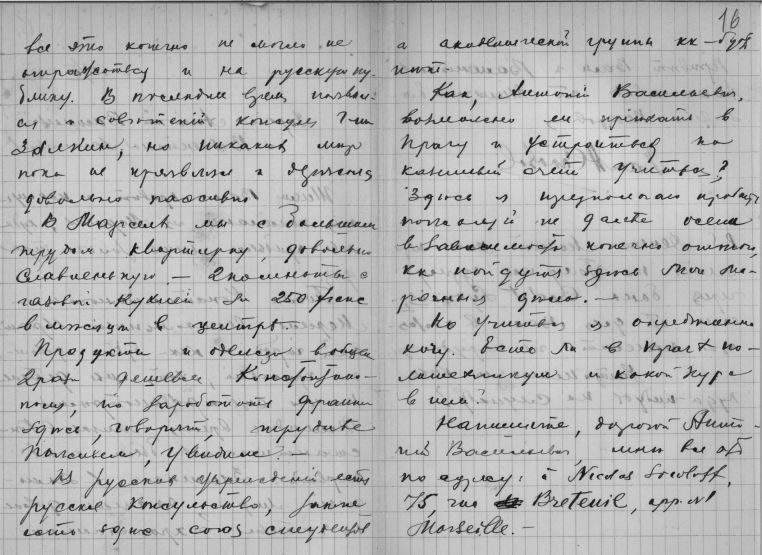 16
все это конечно не могло не
отразиться и на русскую пу-
блику. В последнем
ся советский консул
но никаких мер
пока не проявлял и держался
довольно пассивно
В Марселе мы с большим
трудом квартирку, довольно
славненькую — 2 комнаты с
газовой кухней за 250 franc
в месяц и в центре.
Продукты и одежда в общем
2 раза дешевле Константино-
поля, но заработать франки
здесь, говорят, труднее
Поживем, увидим. —
Из русских учреждений есть
русское консульство,
есть здесь союз студентов
а академической группы кк — будто
нет.
Как, Антоний Васильевич,
возможно ли приехать в
Прагу и устроиться на
казенный счет учиться?
Здесь я предполагаю пробыть
пожалуй не далее осени
в зависимости конечно оттого,
кк пойдут здесь мои ма-
рочныя дела. —
Но учиться я определенно
хочу. Есть ли в Праге по-
литехникум и какой курс
в нем?
Напишите, дорогой Анто-
ний Васильевич, мне все об
по адресу: à Nicolas Socoloff,
75, rue Breteuil, app. №1
Marseille. —